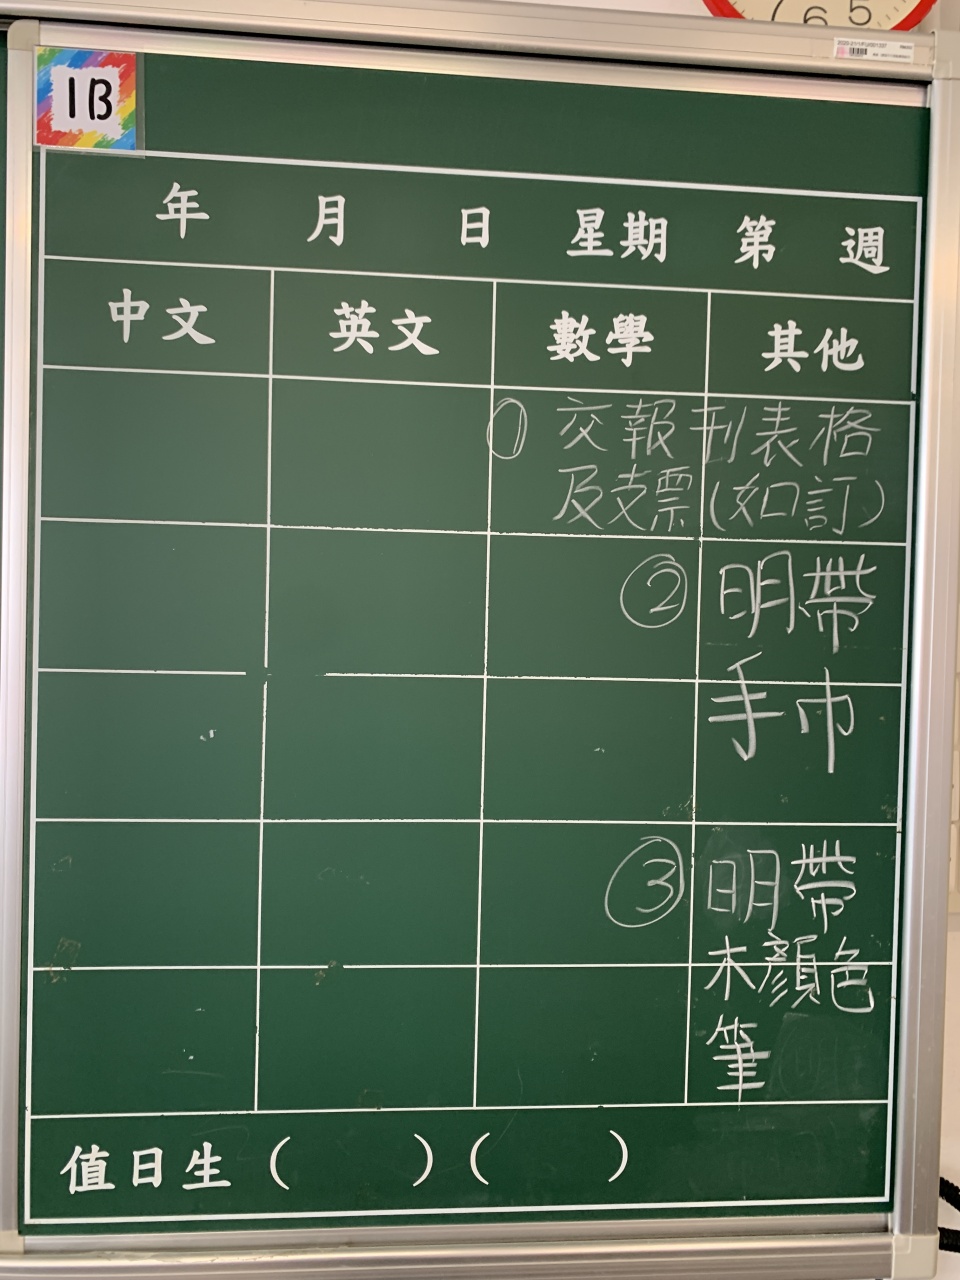 6 5
1B
年 月 日 星期 第 週
中文 英文 數學 其他
① 交報刊表格
及支票(如訂)
② 明帶
手巾
③ 明帶
木顏色
筆
值日生 ( ) ( )